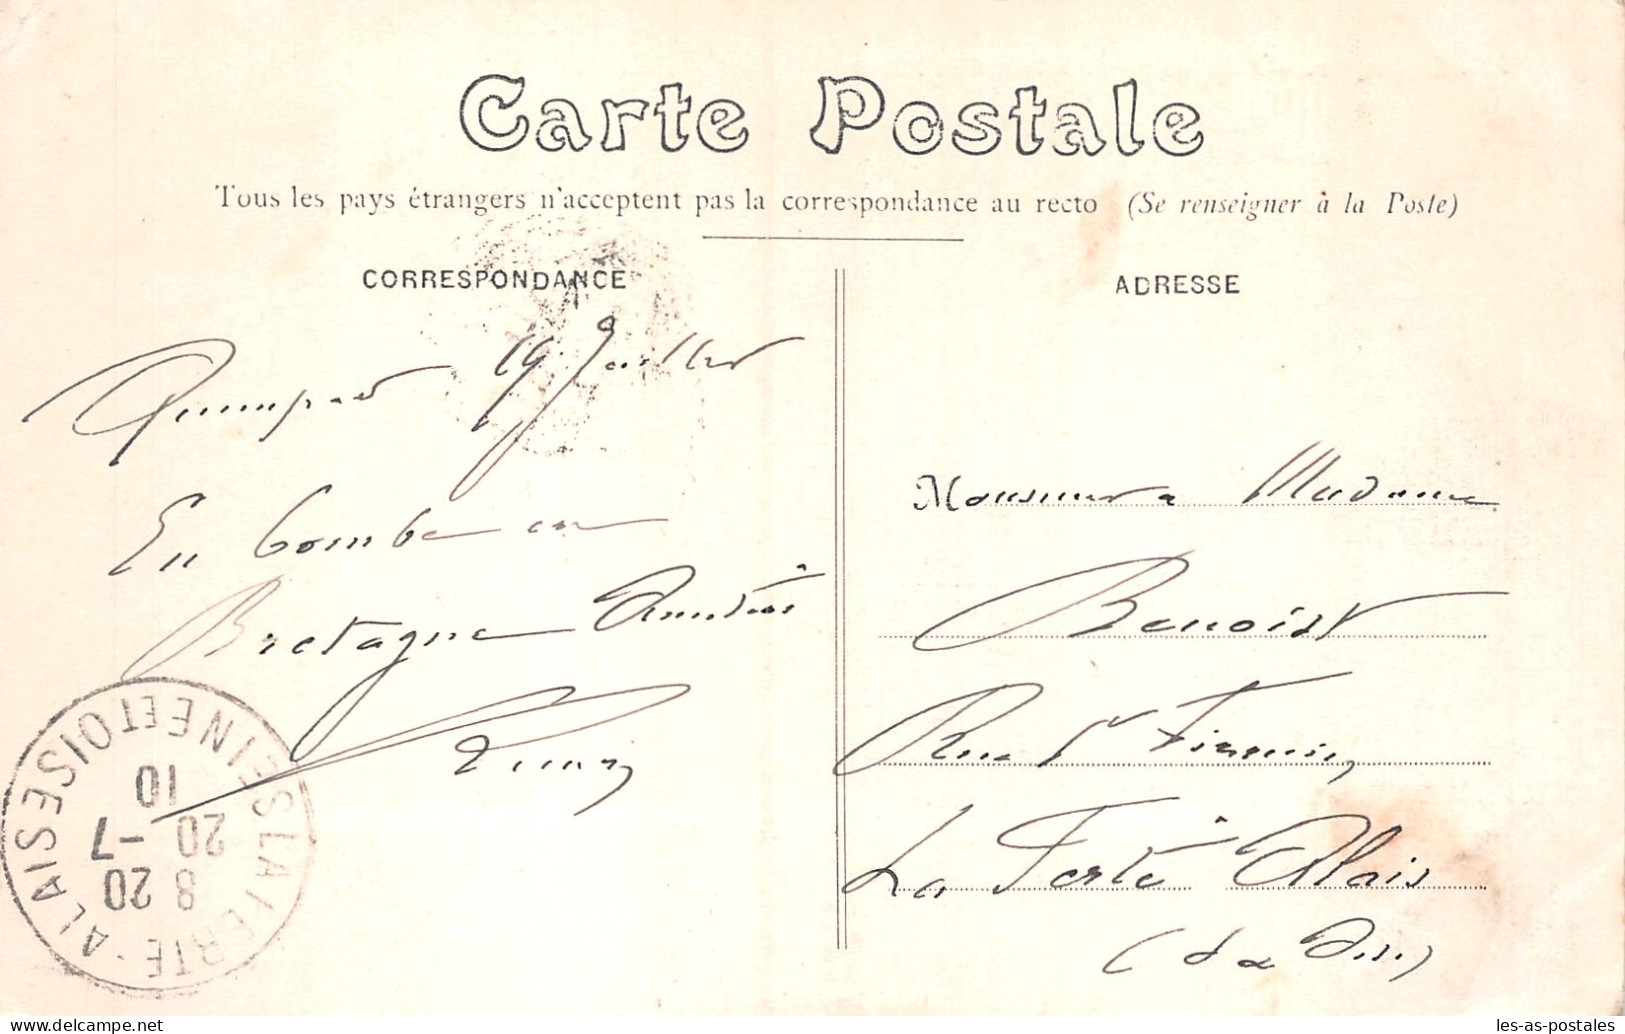 Carte Postale
Tous les pays étrangers n'acceptent pas la correspondance au recto (Se renseigner à la Poste)
CORRESPONDANCE
ADRESSE
Quimper 19 Juillet
En bombe en
Bretagne Amitiés
Monsieur & Madame
Benoist
Rue St Firmin,
La Ferté Alais
(S & Oise)
LA FERTE-ALAIS SEINE ET OISE
8 20
20 -7
10
les-as-postales
www.delcampe.net